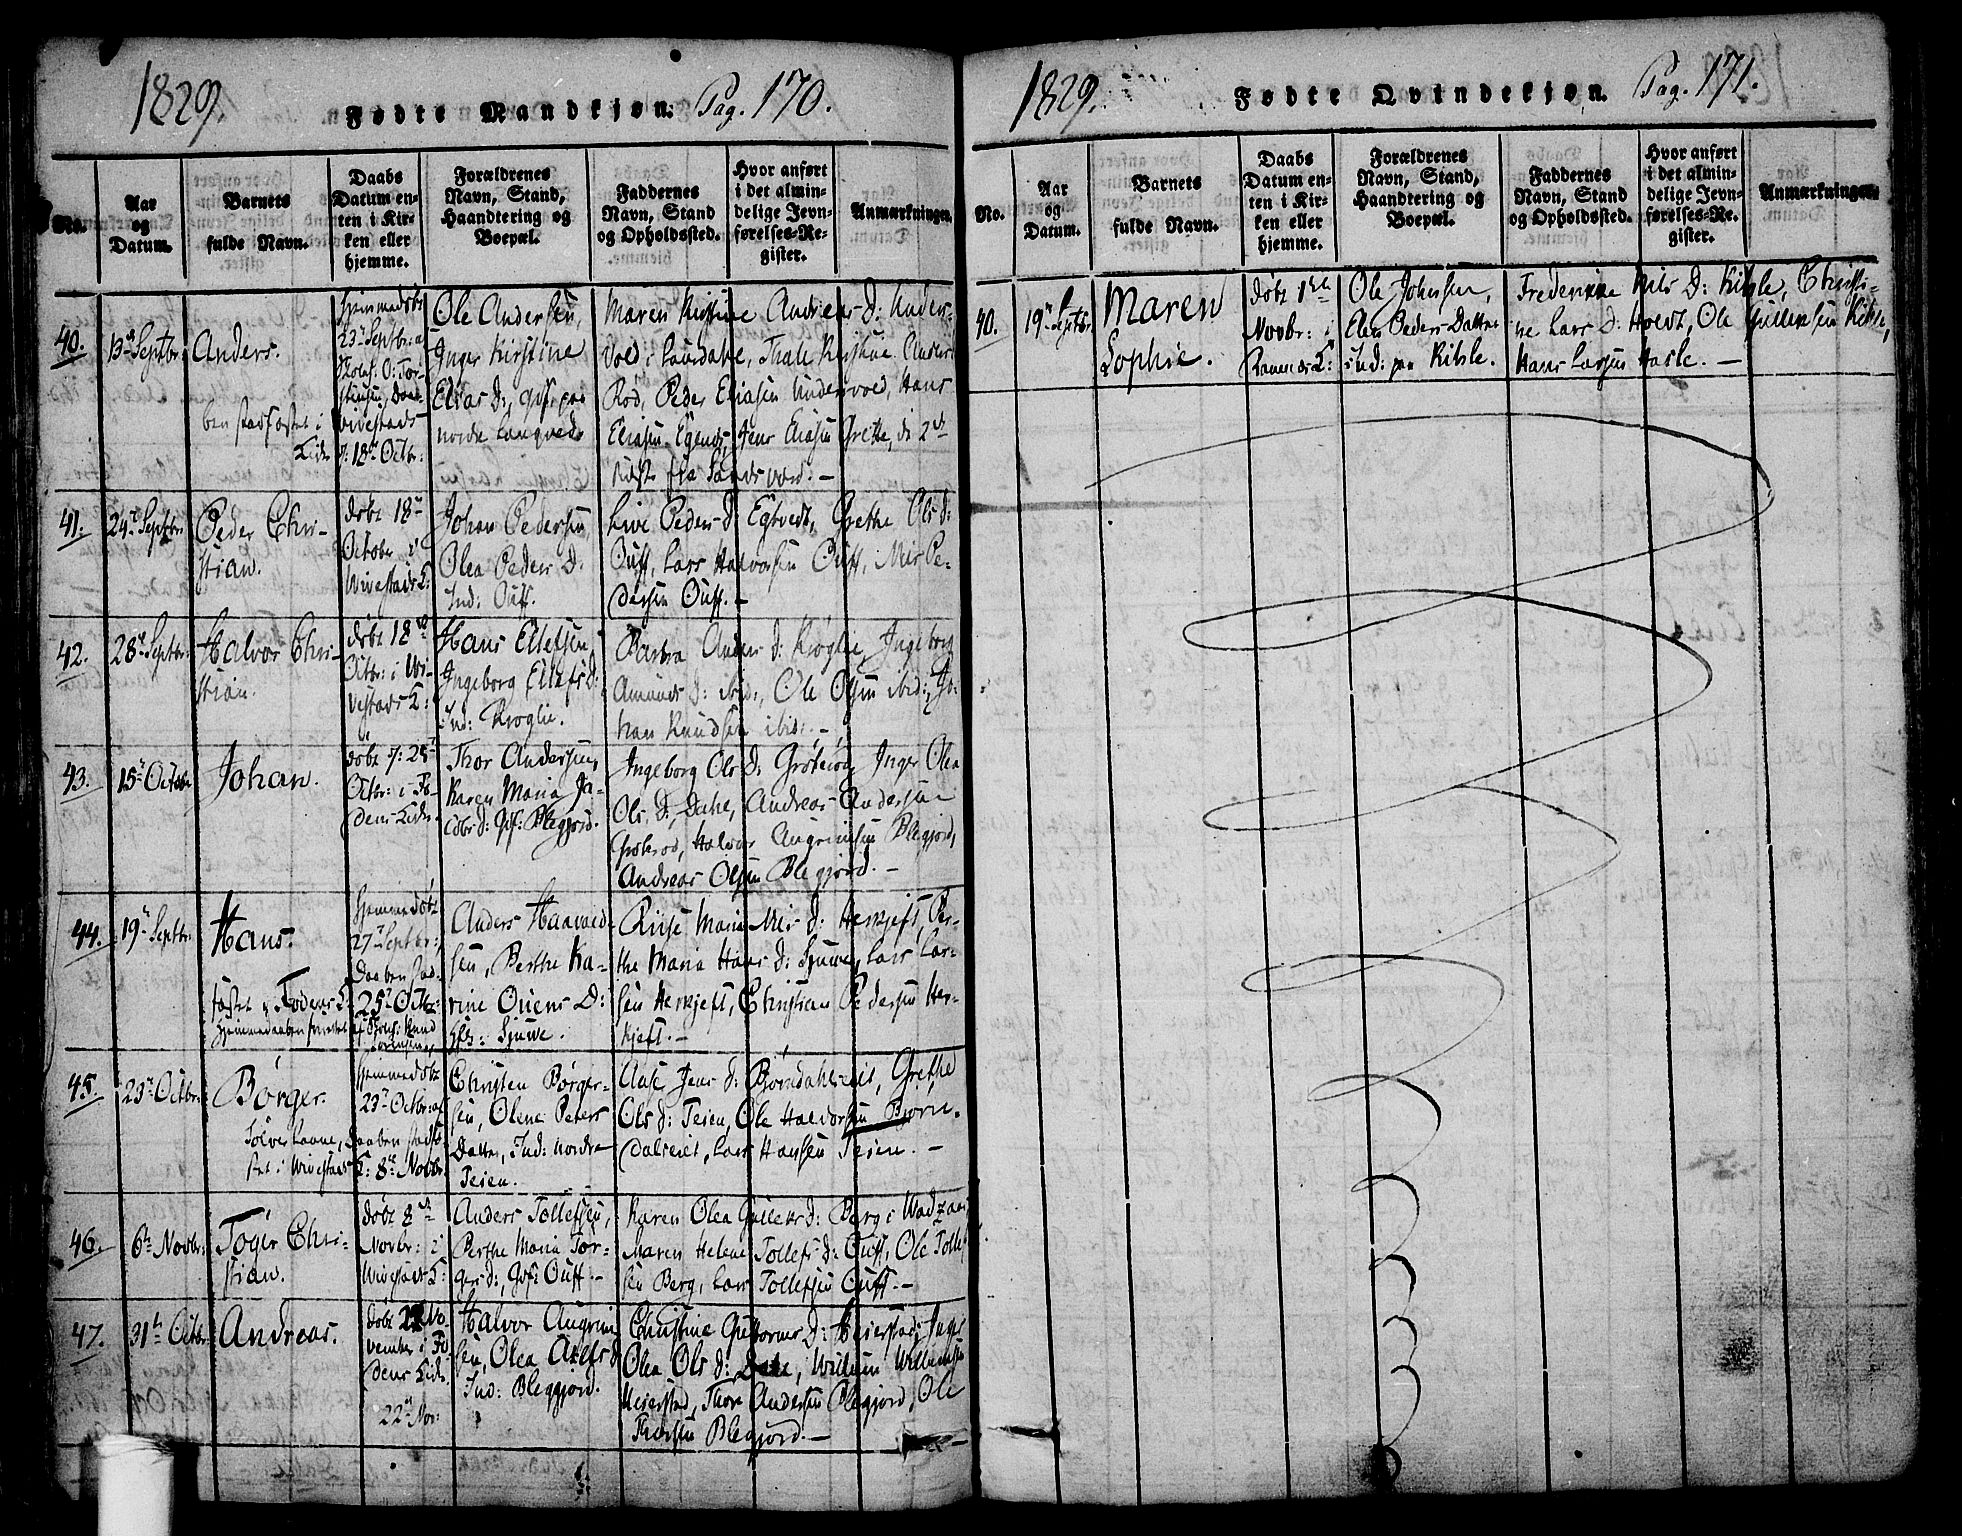 1829.
Fødte Mandkjøn. Pag. 170.
No.
Aar
og
Datum.
Barnets
fulde Navn.
Daabs
Datum en-
ten i Kir-
ken eller
hjemme.
Forældrenes
Navn, Stand,
Haandtering og
Boepæl.
Faddernes
Navn, Stand
og Opholdssted.
Hvor anført
i det almin-
delige Jevn-
førelses-Re-
gister.
Anmærkninger.
40.
13de Septbr:
Anders.
Hjemmedøbt
23de Septbr: af
18de Octbr:
Ole Andersen,
Inger Kirstine
Elias D:
nordre Langved
Maren Kirstine Andreas D: Under-
Rød, Peder Eliasen Undersvold, Hans
Eliasen Egends, Jens Eliasen Grette, de 2de
sidste fra Sandsværd. –
41.
24de Septbr:
Peder Chri-
stian.
døbt 18de
October i
Wivestads K:
Johan Pedersen
Olea Peders D.
Ind: Ouff.
Live Peders D: Egtvedt, Grethe Ols D:
Ouff, Lars Halvorsen Ouff, Nils Pe-
dersen Ouff. –
42.
28de Septbr:
Halvor Chri-
stian.
døbt 18de
Octbr: i Wi-
vestads K:
Hans Ellefsen,
Ingeborg Ellefs D:
Ind: Kroglie.
Barbra Anders D: Kroglie, Ingeborg
Amunds D: ibid:, Ole Olsen ibid:, Jo-
han Knudsen ibid: –
43.
15de Octobr:
Johan.
døbt d: 25de
Octbr: i Fo-
dens Kirke.
Thor Andersen,
Karen Maria Ja-
cobs D: Gpf: Blegjord.
Ingeborg Ols D: Grøterød, Inger Olea
Ols D: Dahe, Andreas Andersen
Grøterød, Halvor Augrimsen Blegjord,
Andreas Olsen Blegjord. –
44.
19de Septbr:
Hans.
Hjemmedøbt
27de Septbr:,
Daaben stad-
fæstet i Fodens K:
25de Octbr:
Hjemmedaaben forrettet af Skoleh: Knud
Sørensen.
Anders Haavald-
sen, Berthe Ka-
rine Ouens D:
Hfb: Sjuwe.
Anne Maria Nils D: Herkjeft, Ber-
the Maria Hans D: Sjuwe, Lars Lar-
sen Herkjeft, Christian Pedersen Her-
kjeft. –
45.
23de Octbr:
Børger.
Daaben stadfæ-
stet i Wivestads K: 8de Novbr:
Hjemmedøbt
23de Octbr: af
Christen Børger-
sen, Olene Peters
Datter, Ind: nordre
Teien.
Anse Jens D: Bjørndahlseiet, Grethe
Ols D: Teien, Ole Halvorsen Bjørn-
dalseiet, Lars Hansen Teien. –
46.
6te Novbr:
Tøger Chri-
stian.
døbt 8de
Novbr: i
Wivestads K:
Anders Tollefsen,
Berthe Maria Tor-
gers D:, Gpf: Ouff. –
Karen Olea Gullens D: Berg i
Maren Helene Tollefs D: Ouff, Ole Tollef-
sen Berg, Lars Tollefsen Ouff. –
47.
31te Octbr:
Andreas.
døbt 22 No-
vember i Fo-
dens Kirke.
22de Nov:
Halvor Augrim-
sen, Olea Axels D:
Ind: Bleggjord.
Christine Guttorms D: Heierstad, Inger
Olea Ols D: Dahe, Willum Willumsen
Heierstad, Thor Andersen Blegjord, Ole
Thorsen Blegjord. –
1829.
Fødte Qvindekjøn. Pag. 171.
No.
Aar
og
Datum.
Barnets
fulde Navn.
Daabs
Datum en-
ten i Kir-
ken eller
hjemme.
Forældrenes
Navn, Stand,
Haandtering og
Boepæl.
Faddernes
Navn, Stand
og Opholdssted.
Hvor anført
i det almin-
delige Jevn-
førelses-Re-
gister.
Anmærkninger.
40.
19de Septbr:
Maren
Sophie.
døbt 1ste
Novbr: i
Ramnæs K:
Ole Johnsen,
Elen Peders Datter
Ind: paa Kihle.
Frederikke Nils D: Kihle, Christi-
ne Lars D: Holdt, Ole Gullersen Kihle,
Hans Larsen Hasle. –